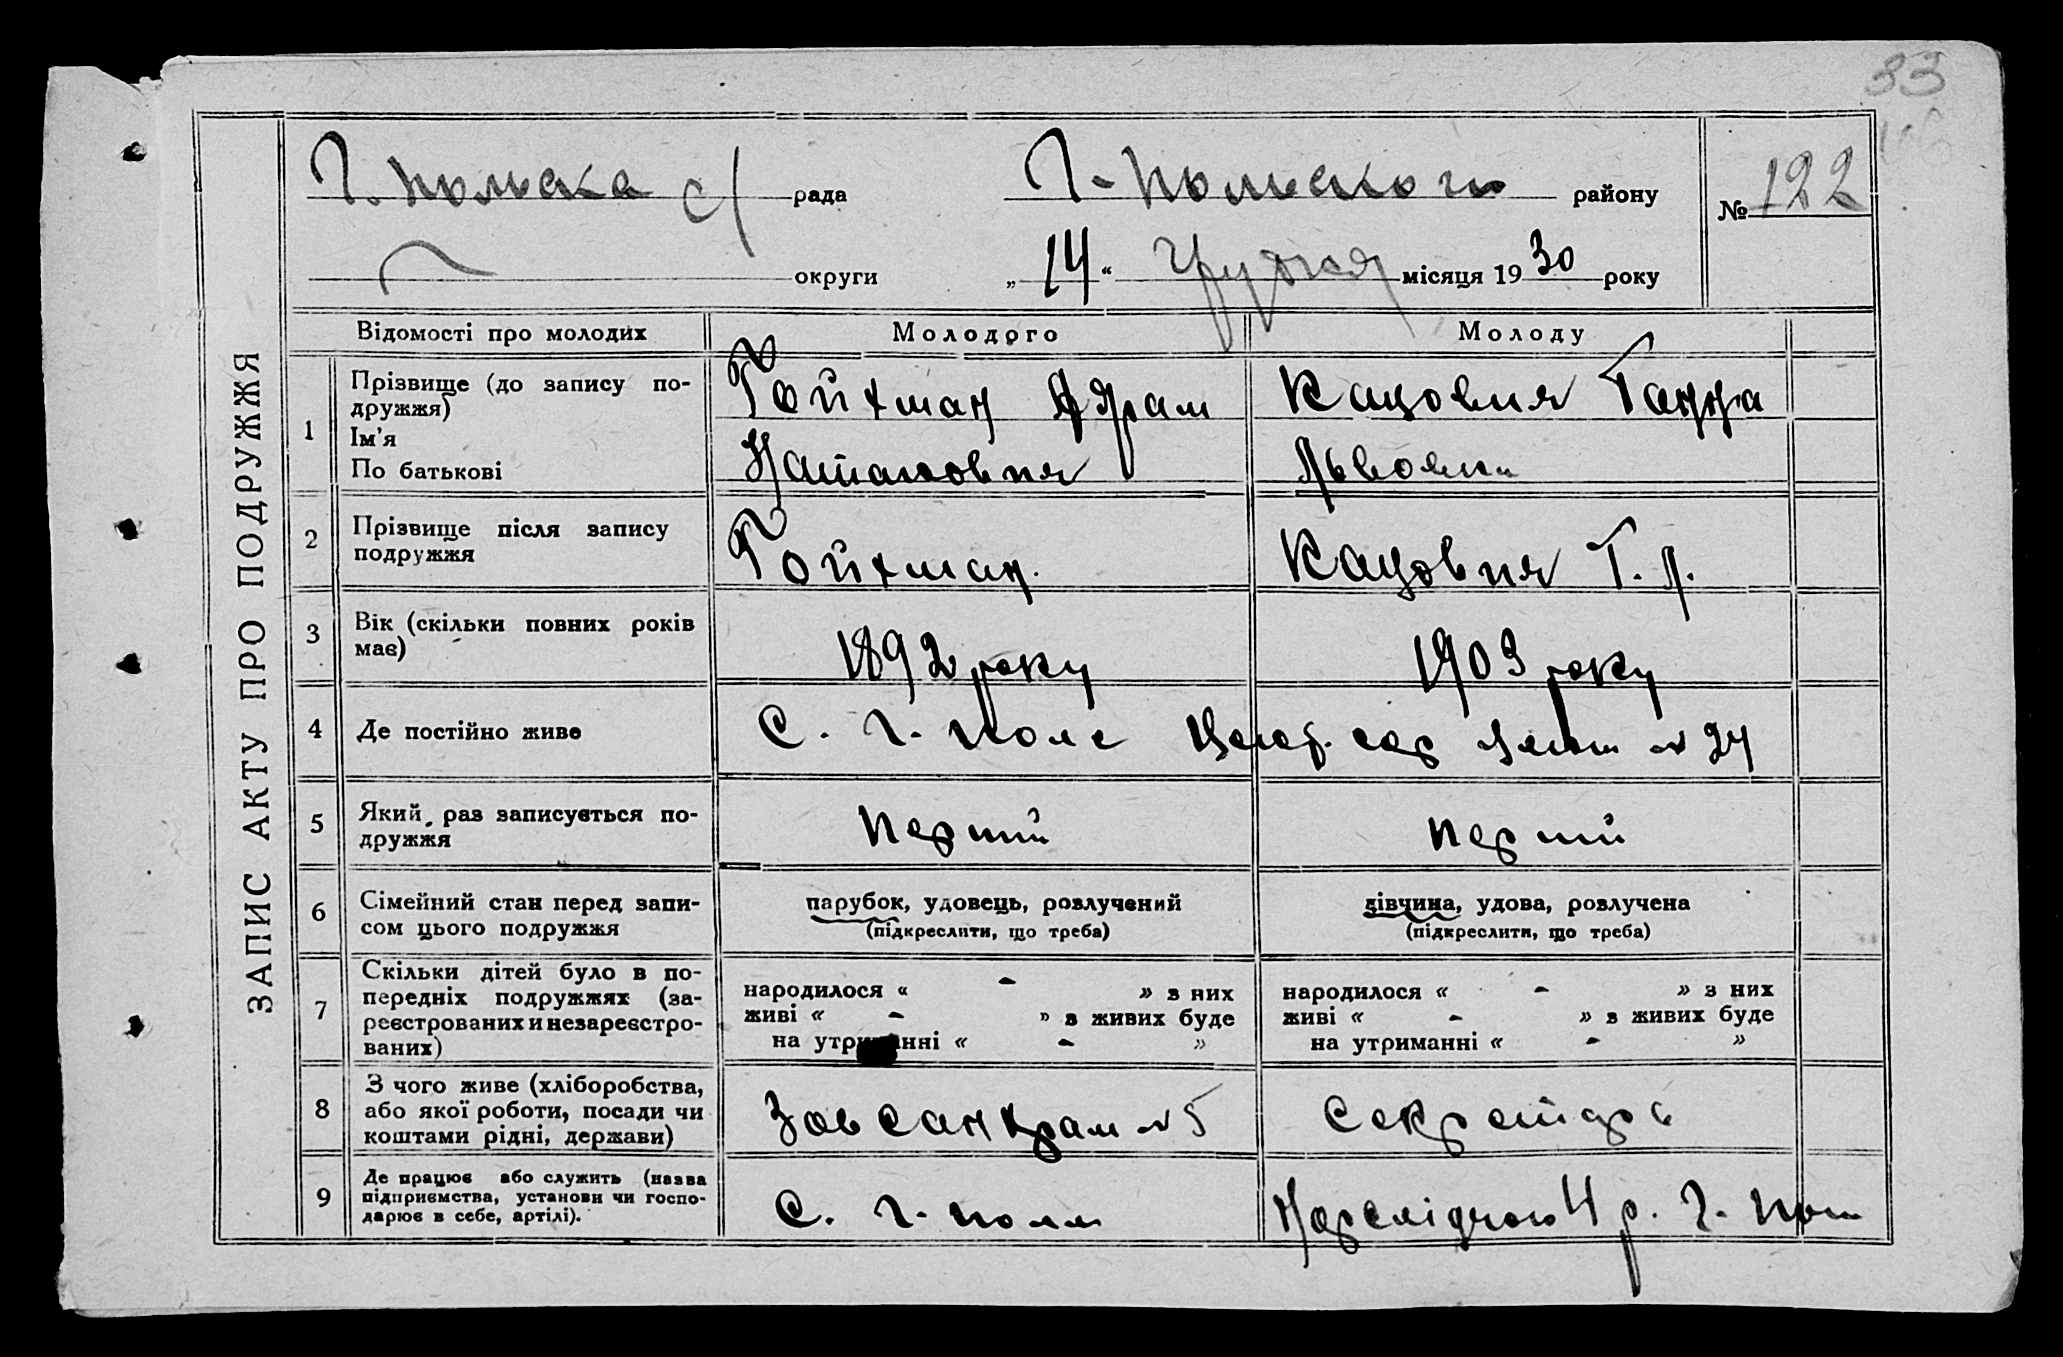 33
Г. Польска с/рада Г-Польского району №122
округи „14“ Грудня місяця 1930 року
ЗАПИС АКТУ ПРО ПОДРУЖЖЯ
Відомості про молодих Молодого Молоду
1 Прізвище (до запису по-
дружжя)
Ім'я
По батькові
Гойхман Абрам
Натановия
Кацовия Ганна
Львовна
2 Прізвище після запису
подружжя
Гойхман.
Кацовия Г. Л.
3 Вік (скільки повних років
має)
1892 року
1903 року
4 Де постійно живе
С. Г. Поле № 24
5 Який раз записується по-
дружжя
перший
перший
6 Сімейний стан перед запи-
сом цього подружжя
парубок, удовець, розлучений
(підкреслити, що треба)
дівчина, удова, розлучена
(підкреслити, що треба)
7 Скільки дітей було в по-
передніх подружжях (за-
реєстрованих и незареєстро-
ваних)
народилося « - » з них
живі « - » з живих буде
на утриманні « - »
народилося « - » з них
живі « - » з живих буде
на утриманні « - »
8 З чого живе (хліборобства,
або якої роботи, посади чи
коштами рідні, держави)
Зав крам № 5
Секретарь
9 Де працює або служить (назва
підприємства, установи чи госпо-
дарює в себе, артілі).
С. Г. поля
Нарслідчого 4 р. Г. Пол